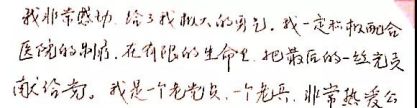 我非常感动、给了我极大的勇气。我一定积极配合
医院的治疗、在有限的生命里、把最后的一丝光亮
献给党。我是一个老党员、一个老兵、非常热爱公